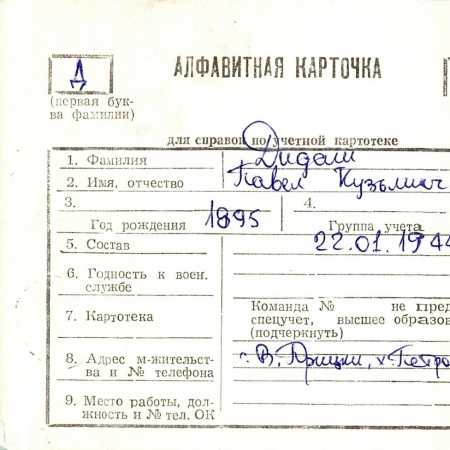 Д
АЛФАВИТНАЯ КАРТОЧКА
(первая бук-
ва фамилии)
для справок по учетной картотеке
1. Фамилия Дидаш
2. Имя, отчество Павел Кузьмич
3. 1895 4.
Год рождения Группа учета
5. Состав 22.01.1944
6. Годность к воен.
службе
Команда № не пред
7. Картотека спецучет, высшее образов
(подчеркнуть)
8. Адрес м-жительст-
ва и № телефона г. В. х. Петро
9. Место работы, дол-
жность и № тел. ОК